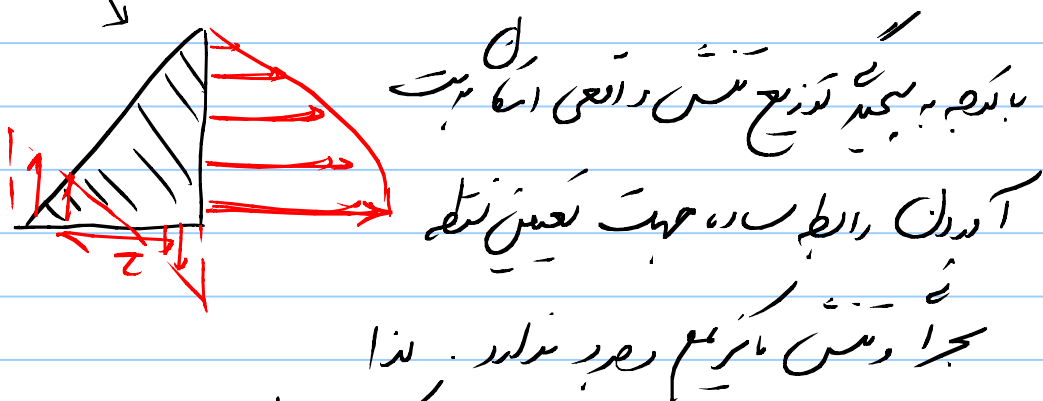 با توجه به پیچیدگی توزیع تنش واقعی امکان بدست
آوردن رابطه ساده جهت تعیین نقطه
بحرانی و تنش ماکزیمم وجود ندارد. لذا
τ